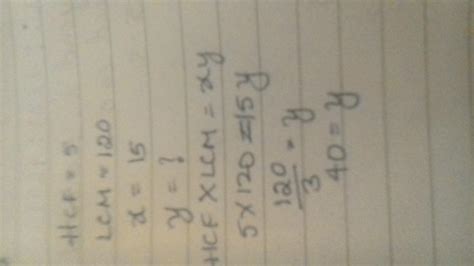 HCF = 5
LCM = 120
x = 15
y = ?
HCF X LCM = xy
5 X 120 = 15 y
120/3 = y
40 = y